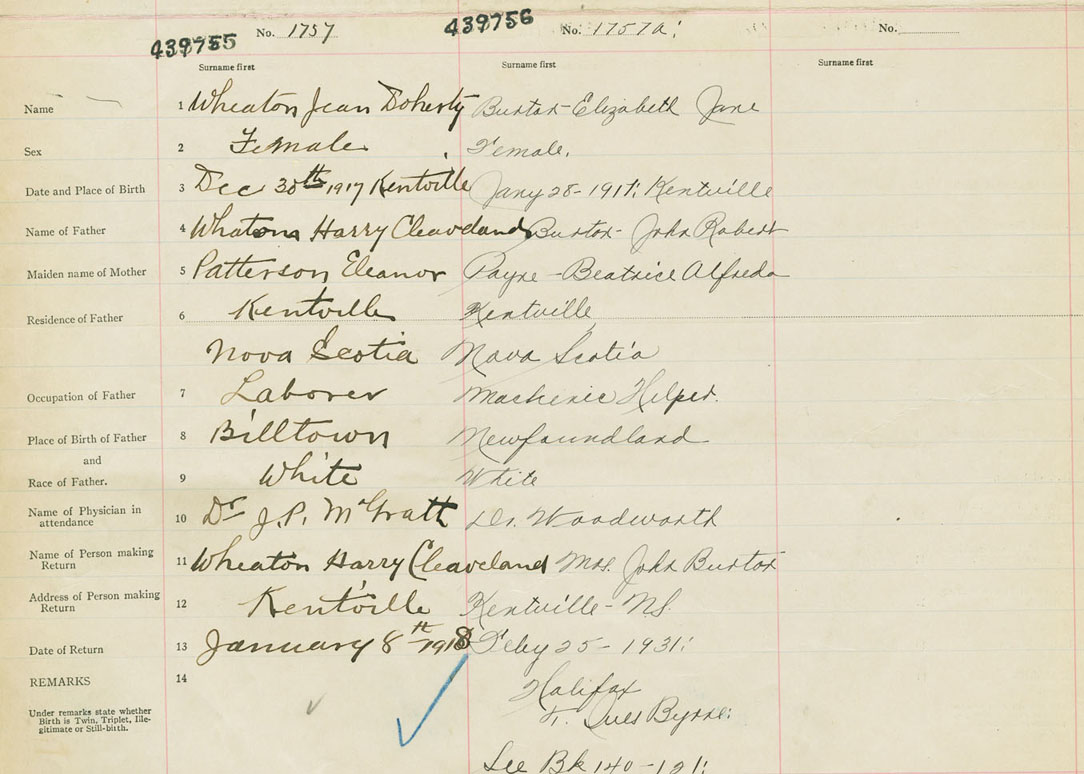 439755 No. 1757 439756 No. 1757a; No.
Surname first Surname first Surname first
Name 1 Wheaton Jean Doherty Burton Elizabeth Jane
Sex 2 Female Female.
Date and Place of Birth 3 Dec 30th 1917 Kentville Jany 28 - 191 Kentville
Name of Father 4 Whatons Harry Cleaveland Burton - John Robert
Maiden name of Mother 5 Patterson Eleanor Payne - Beatrice Alfreda
Residence of Father 6 Kentville Kentville
Nova Scotia Nova Scotia
Occupation of Father 7 Laborer Machinic Helper.
Place of Birth of Father 8 Billtown Newfoundland
and
Race of Father. 9 White White
Name of Physician in
attendance 10 Dr J. P. McGrath Dr. Woodworth
Name of Person making
Return 11 Wheaton Harry Cleaveland Mrs. John Burton
Address of Person making
Return 12 Kentville Kentville - N.S.
Date of Return 13 January 8th 1918 Feby 25 - 1931;
REMARKS 14 Halifax
Under remarks state whether
Birth is Twin, Triplet, Ille-
gitimate or Still-birth.
Byrne;
See Bk 140 - 121;